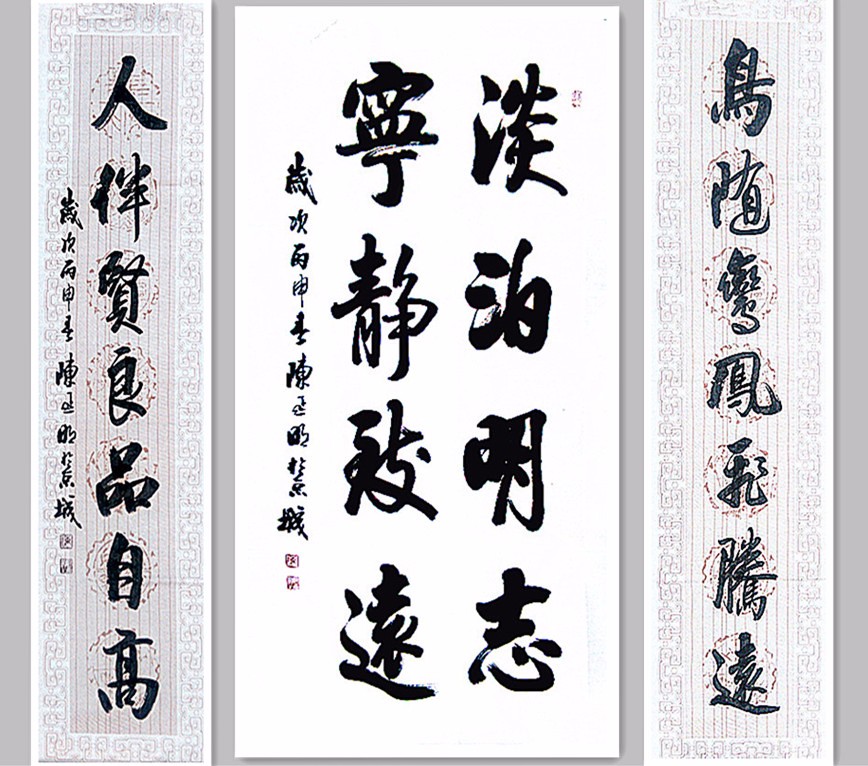 鳥随鸞鳳飛騰遠
淡泊明志
寧靜致遠
歲次丙申春陳正明於京城
人伴賢良品自高
歲次丙申春陳正明於京城